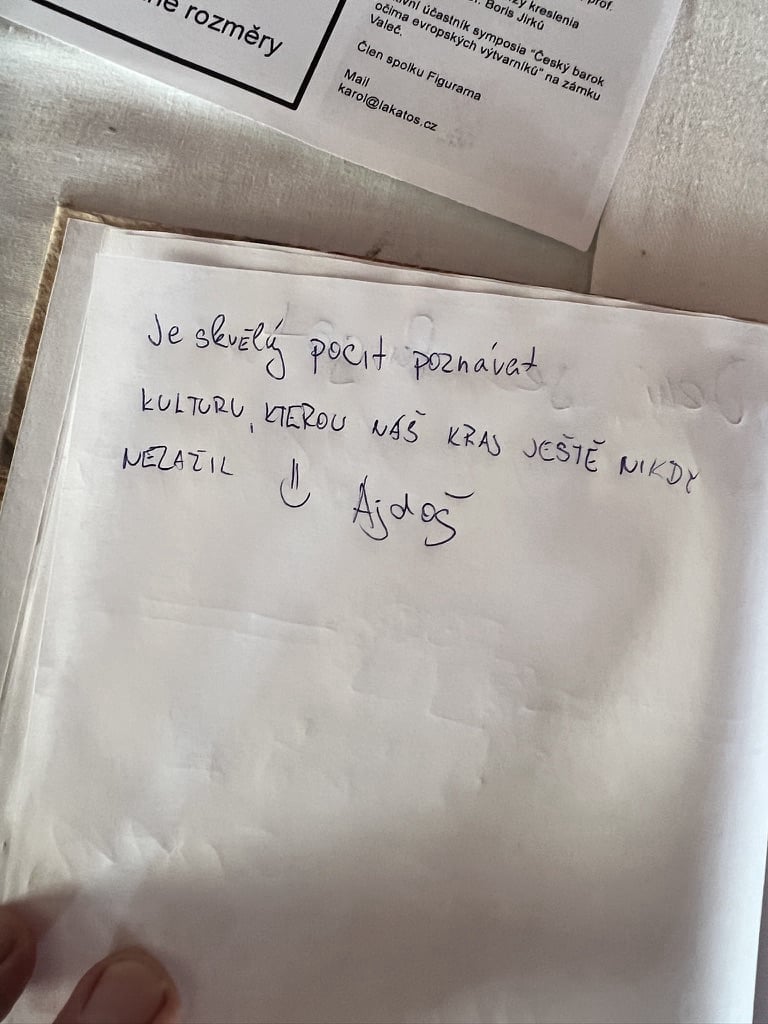 né rozměry
zy kreslenia
prof.
Boris Jirků
ivní účastník symposia "Český barok
očima evropských výtvarníků" na zámku
Valeč.
Člen spolku Figurama
Mail
karol@lakatos.cz
Je skvělý pocit poznávat
KULTURU, KTEROU NÁŠ KRAJ JEŠTĚ NIKDY
NEZAŽIL
Ajdoš